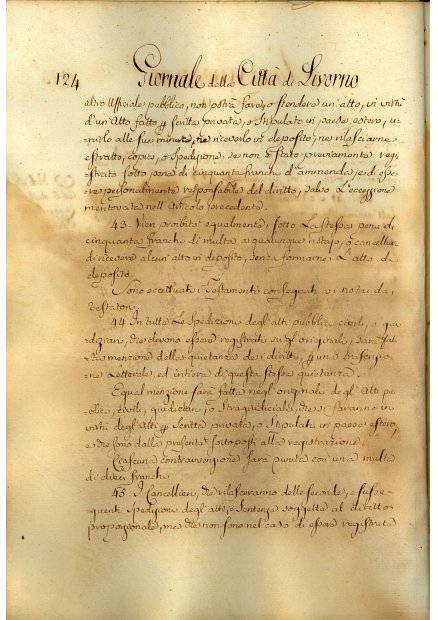 124 Giornale della Città di Livorno
altro Ufficiale pubblico, non potrà fare, o stendere un'atto, in virtù
d'un'Atto fatto p scritta privata, o Stipulato in paese estero, u-
nirlo alle sue minute, ne riceverlo in deposito, ne rilasciarne
estratto, copia, o Spedizione, se non è Stato previamente regi-
strato sotto pena di cinquanta franchi d'ammenda, e di esse-
re personalmente responsabile del diritto, salvo L'eccezione
mentovata nell'Articolo precedente.
43. Vien proibito egualmente, sotto La stessa pena di
cinquanta franchi di multa a qualunque notajo, o cancelliere
di ricevere alcun'atto in deposito, senza formarne L'atto di
deposito.
Sono eccettuati i Testamenti consegnati ai notai dai
testatori.
44. In tutte Le Spedizioni degl'atti pubblici, civili, o giu-
diziari, che devono essere registrati sugl'originali, sarà fat-
ta menzione della quietanza dei diritti, p una trascrizio-
ne Letterale, ed intiera di questa stessa quietanza.
Egual menzione sarà fatta negl'originali degl'Atti pu-
blici, civili, giudiziari, o Stragiudiciali, che si faranno in
virtù degl'Atti p Scritta privata, o Stipulati in paese estero,
e che sono dalla presente sottoposti alla registrazione.
Ciascuna contravvenzione sarà punita con una multa
di dieci franchi.
45. I Cancellieri, che rilasceranno delle seconde, e susse-
quenti Spedizioni degl'atti, e Sentenze soggette al diritto
proporzionale, ma che non sono nel caso di essere registrate